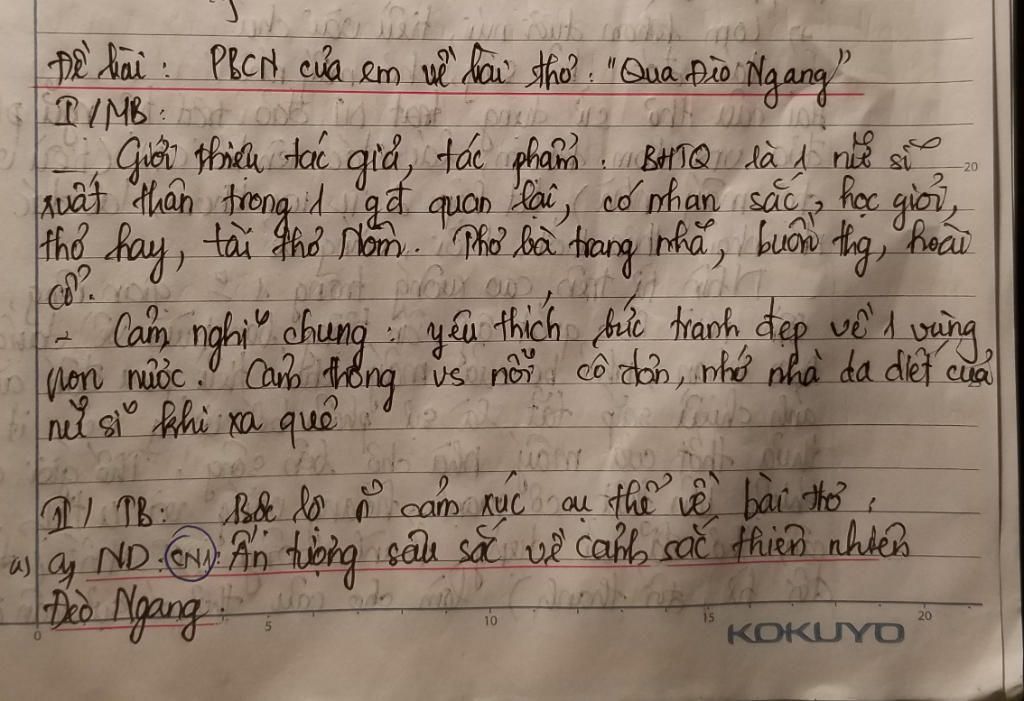 Đề bài: PBCN của em về bài thơ: "Qua Đèo Ngang"
I/MB:
_ Giới thiệu tác giả, tác phẩm: BHTQ là 1 nữ sĩ
xuất thân trong 1 gđ quan lại, có nhan sắc, học giỏi,
thơ hay, tài thơ Nôm. Thơ bà trang nhã, buồn thg, hoài
cổ.
- Cảm nghĩ chung: yêu thích bức tranh đẹp về 1 vùng
non nước. Cảm thông vs nỗi cô đơn, nhớ nhà da diết của
nữ sĩ khi xa quê
II/ TB: Bộc lộ ~ cảm xúc cụ thể về bài thơ:
a) a) ND: CN1: Ấn tượng sâu sắc về cảnh sắc thiên nhiên
Đèo Ngang.
20
0 5 10 15 20
KOKUYO